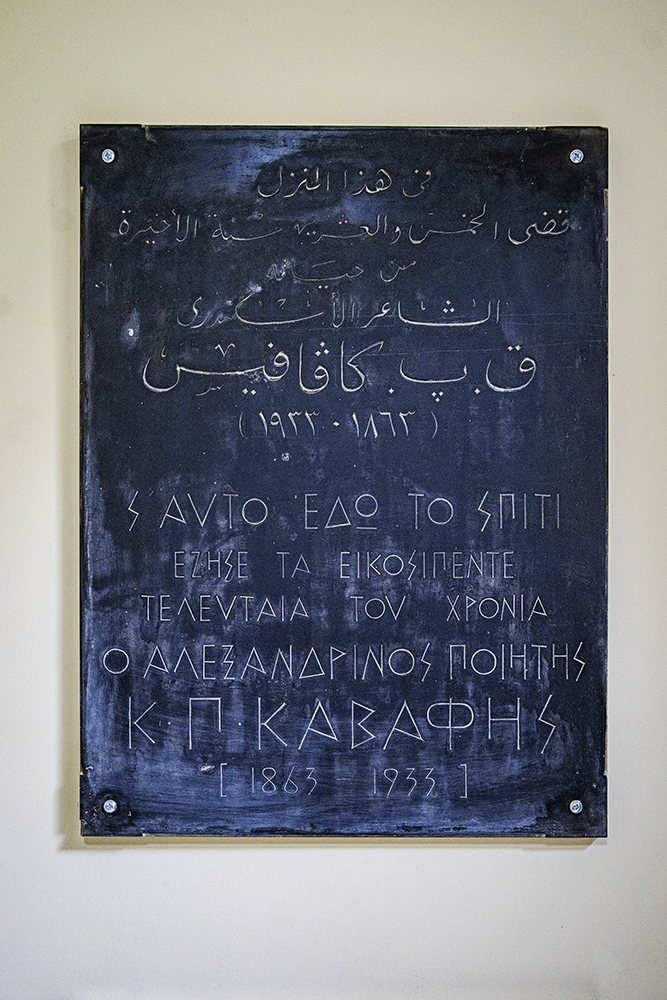 فى هذا المنزل
قضى الخمس والعشرين سنة الأخيرة
من حياته
الشاعر الأسكندرى
ق. پ. كاڤافيس
(١٨٦٣ - ١٩٣٣)
Σ' ΑΥΤΟ ΕΔΩ ΤΟ ΣΠΙΤΙ
ΕΖΗΣΕ ΤΑ ΕΙΚΟΣΙΠΕΝΤΕ
ΤΕΛΕΥΤΑΙΑ ΤΟΥ ΧΡΟΝΙΑ
Ο ΑΛΕΞΑΝΔΡΙΝΟΣ ΠΟΙΗΤΗΣ
Κ·Π·ΚΑΒΑΦΗΣ
[1863 – 1933]